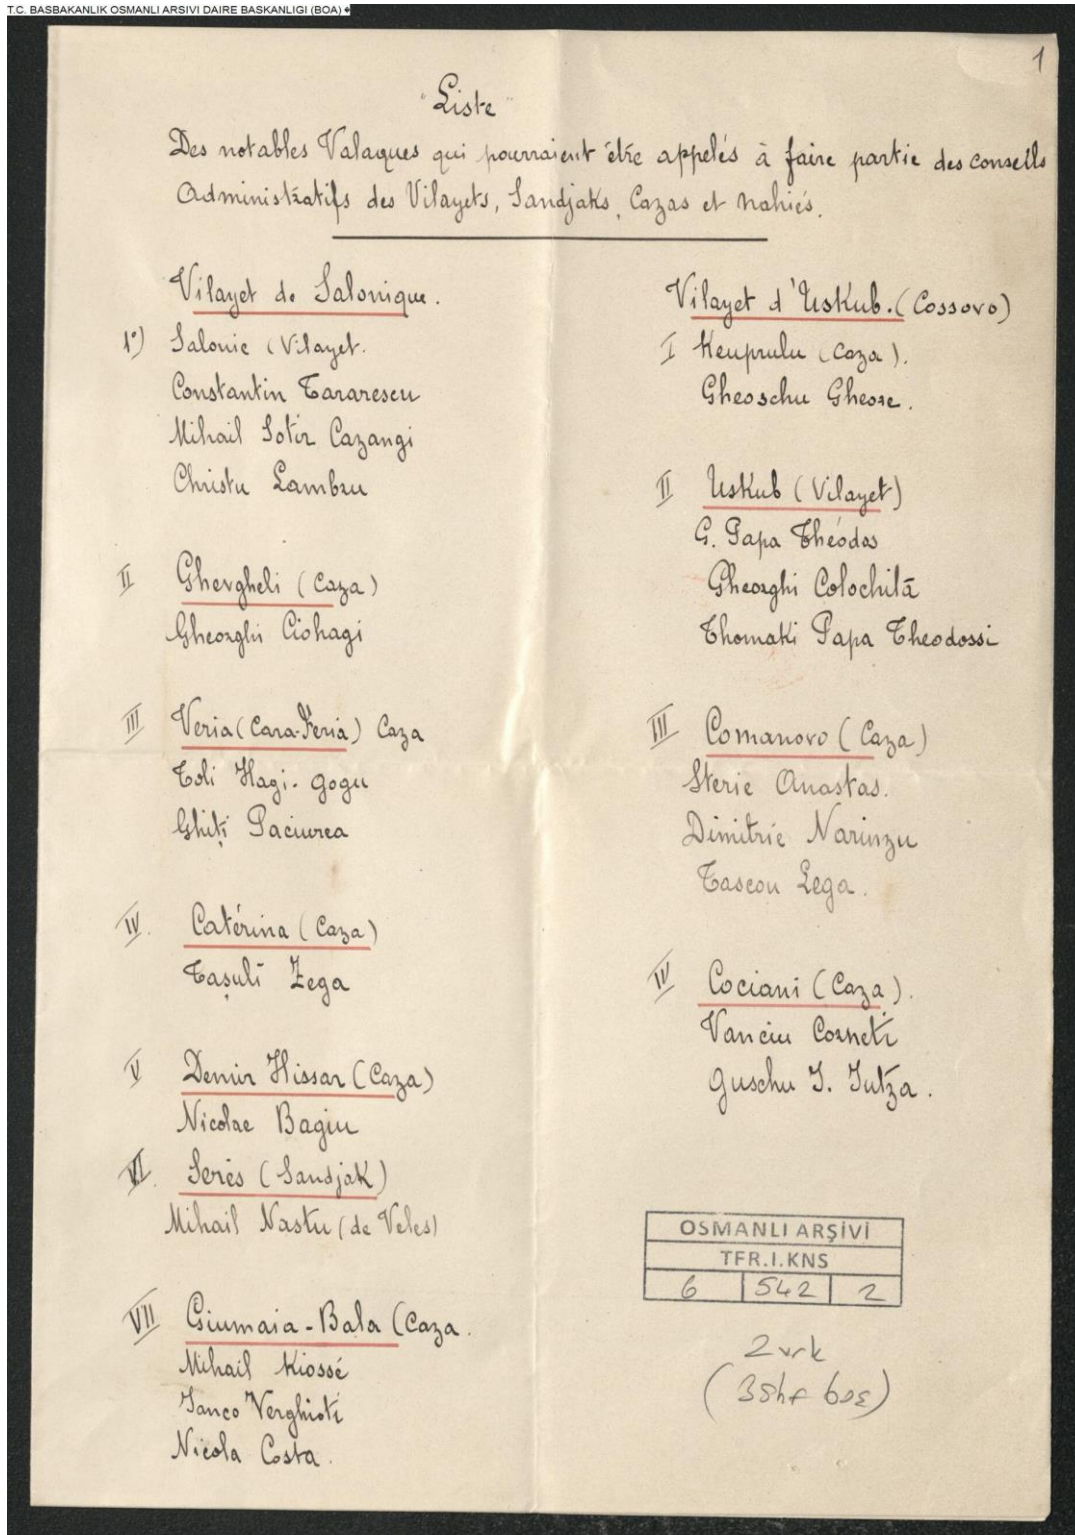 T.C. BASBAKANLIK OSMANLI ARSIVI DAIRE BASKANLIGI (BOA)
1
"Liste"
Des notables Valaques qui pourraient être appelés à faire partie des conseils
Administratifs des Vilayets, Sandjaks, Cazas et nahiés.
Vilayet de Salonique.
1°) Salonic (Vilayet.
Constantin Tararescu
Mihail Sotir Cazangi
Christu Lambru
II Ghevgheli (Caza)
Gheorghi Ciohagi
III Veria (Cara-Feria) Caza
Toli Hagi-gogu
Ghiți Paciurea
IV. Catérina (Caza)
Tașuli Zega
V Demir Hissar (Caza)
Nicolae Bagiu
VI. Serès (Sandjak)
Mihail Nastu (de Veles)
VII Giumaia-Bala (Caza.
Mihail Kiossé
Ianco Verghioti
Nicola Costa.
Vilayet d'Uskub. (Cossovo)
I Keuprulu (Caza).
Gheoschu Gheore.
II Uskub (Vilayet)
G. Papa Théodos
Gheorghi Colochită
Thomaki Papa Theodossi
III Comanovo (Caza)
Sterie Anastas.
Dimitrie Narinzu
Tascou Lega.
IV Cociani (Caza).
Vanciu Corneti
Guschu I. Iutza.
OSMANLI ARŞİVİ
TFR.I.KNS
6 542 2
2 vrk
(3 shf boş)